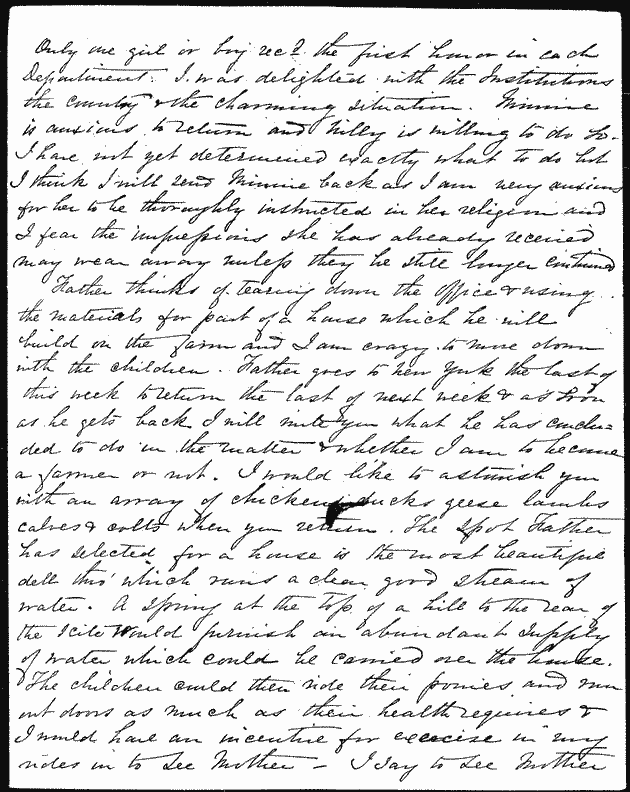 Only one girl or boy recd. the first honor in each
Department. I was delighted with the Institutions
the country & the charming situation. Minnie
is anxious to return and Willy is willing to do so.
I have not yet determined exactly what to do but
I think I will send Minnie back as I am very anxious
for her to be thoroughly instructed in her religion and
I fear the impressions she has already received
may wear away unless they be still longer continued
Father thinks of tearing down the office & using
the materials for part of a house which he will
build on the farm and I am crazy to move down
with the children. Father goes to New York the last of
this week to return the last of next week & as soon
as he gets back I will write you what he has conclu=
ded to do in the matter & whether I am to become
a farmer or not. I would like to astonish you
with an array of chickens ducks geese lambs
calves & colts when you return. The spot Father
has selected for a house is the most beautiful
dell thro' which runs a clear good stream of
water. A spring at the top of a hill to the rear of
the scite would furnish an abundant supply
of water which could be carried over the house.
The children could then ride their ponies and run
out doors as much as their health requires &
I would have an incentive for exercise in my
rides in to see Mother – I say to see Mother